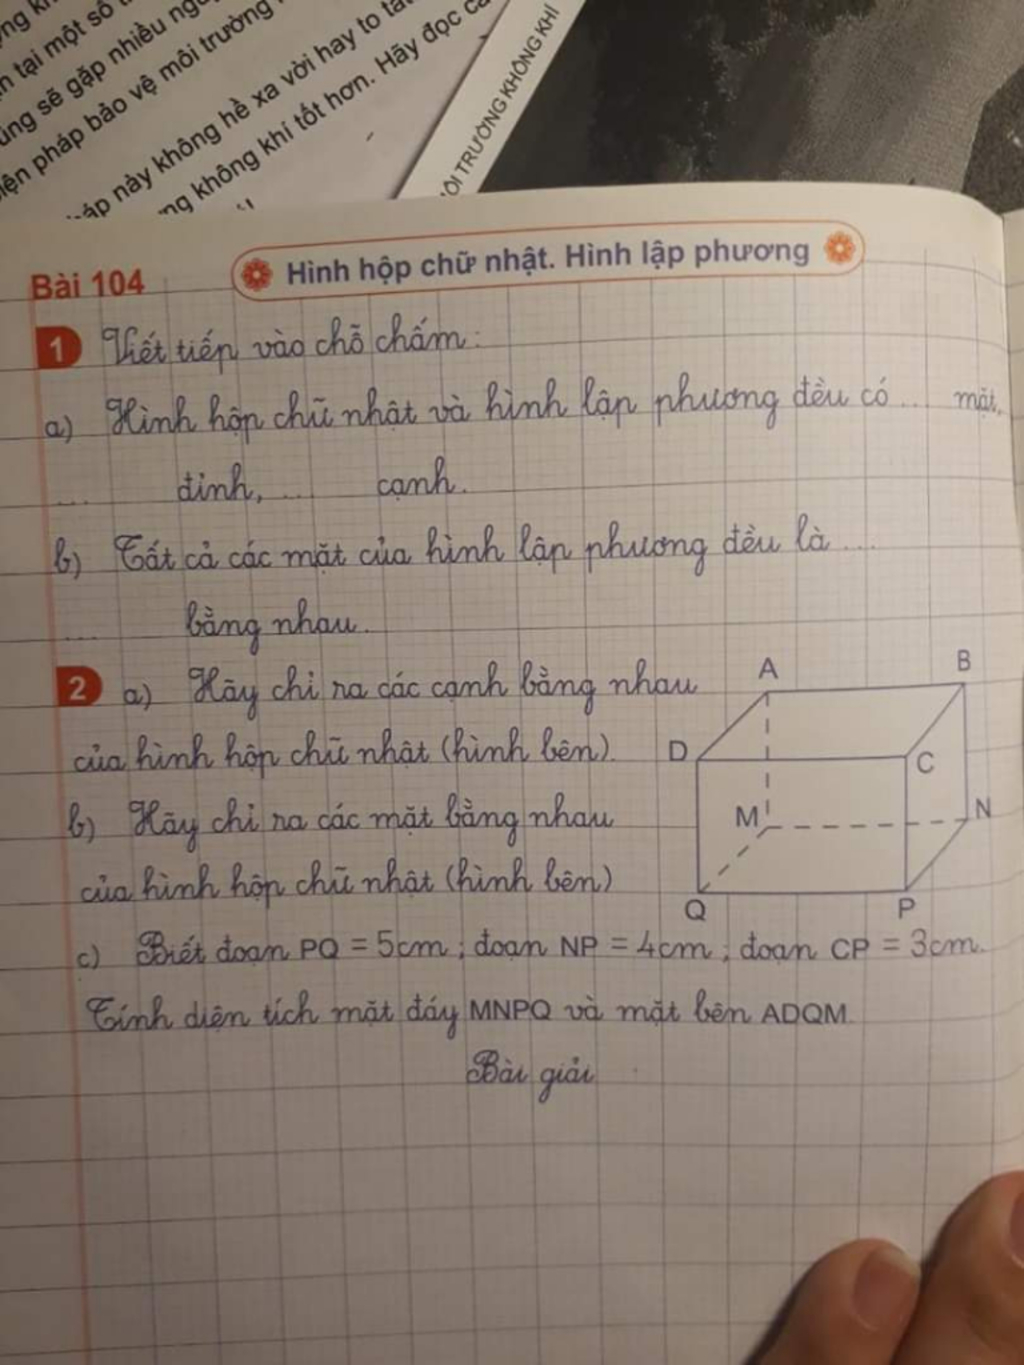 n tại một số
ũng sẽ gặp nhiều
iện pháp bảo vệ môi trường
áp này không hề xa vời hay to
ng không khí tốt hơn. Hãy đọc
ÔI TRƯỜNG KHÔNG KHÍ
Bài 104
Hình hộp chữ nhật. Hình lập phương
1 Viết tiếp vào chỗ chấm:
a) Hình hộp chữ nhật và hình lập phương đều có ... mặt,
... đỉnh, ... cạnh.
b) Tất cả các mặt của hình lập phương đều là ...
... bằng nhau.
2 a) Hãy chỉ ra các cạnh bằng nhau
của hình hộp chữ nhật (hình bên).
b) Hãy chỉ ra các mặt bằng nhau
của hình hộp chữ nhật (hình bên)
A B
D C
M N
Q P
c) Biết đoạn PQ = 5cm; đoạn NP = 4cm; đoạn CP = 3cm.
Tính diện tích mặt đáy MNPQ và mặt bên ADQM.
Bài giải